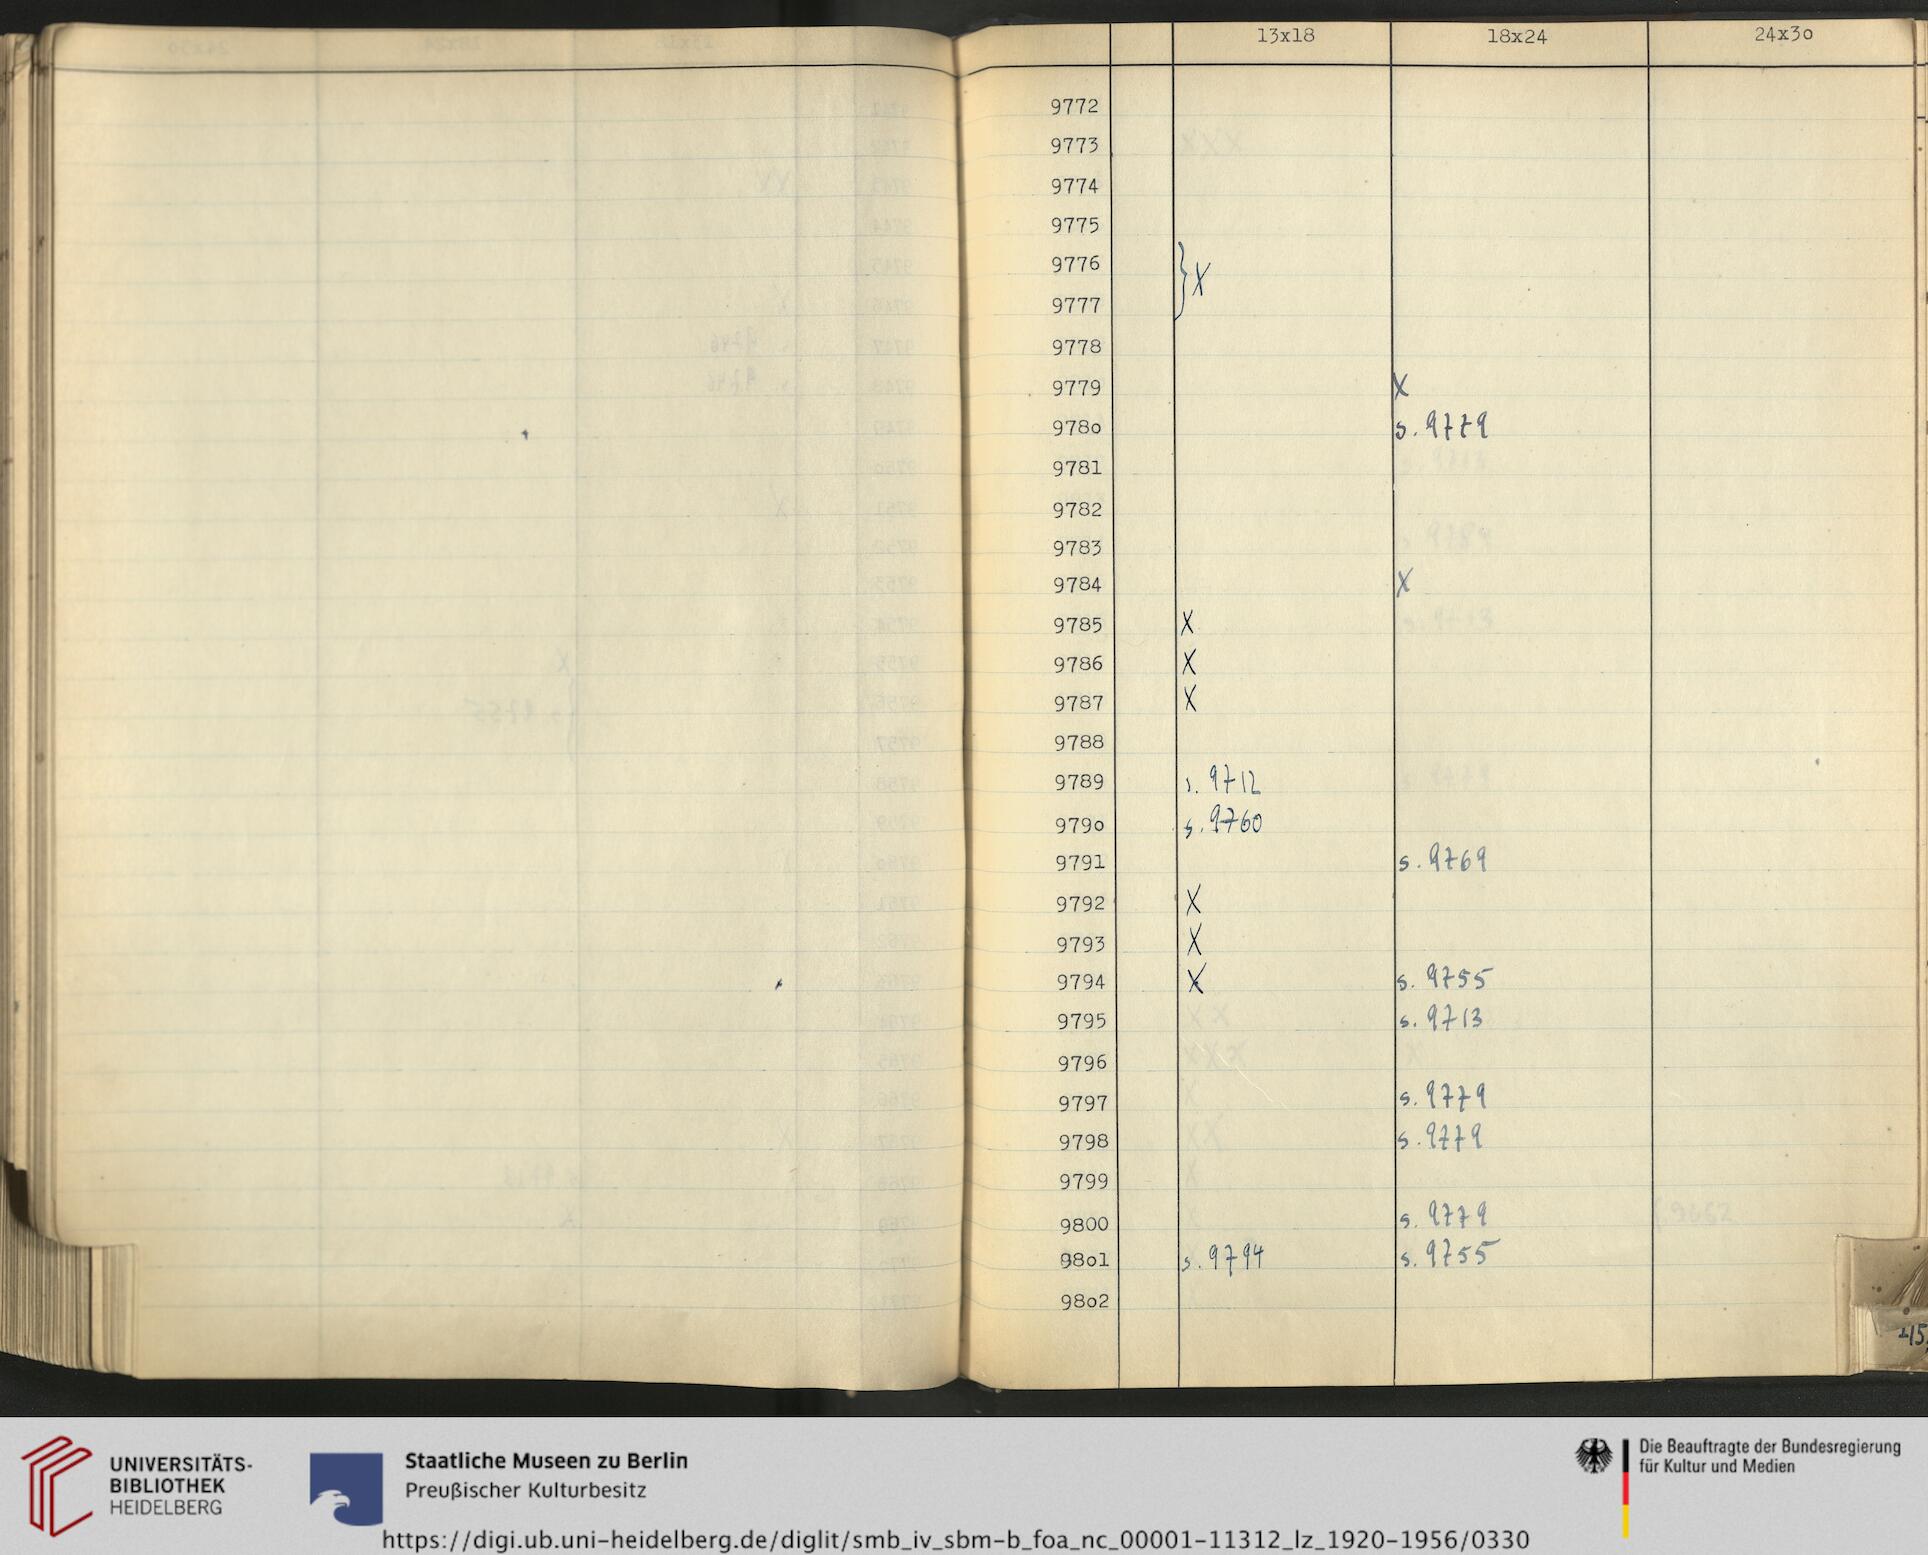 13x18 18x24 24x3o
9772
9773
9774
9775
9776 } X
9777
9778
9779 X
978o s. 9779
9781
9782
9783
9784 X
9785 X
9786 X
9787 X
9788
9789 s. 9712
979o s. 9760
9791 s. 9769
9792 X
9793 X
9794 X s. 9755
9795 s. 9713
9796
9797 s. 9779
9798 s. 9779
9799
9800 s. 9779
98o1 s. 9794 s. 9755
98o2
UNIVERSITÄTS-
BIBLIOTHEK
HEIDELBERG
Staatliche Museen zu Berlin
Preußischer Kulturbesitz
Die Beauftragte der Bundesregierung
für Kultur und Medien
https://digi.ub.uni-heidelberg.de/diglit/smb_iv_sbm-b_foa_nc_00001-11312_lz_1920-1956/0330